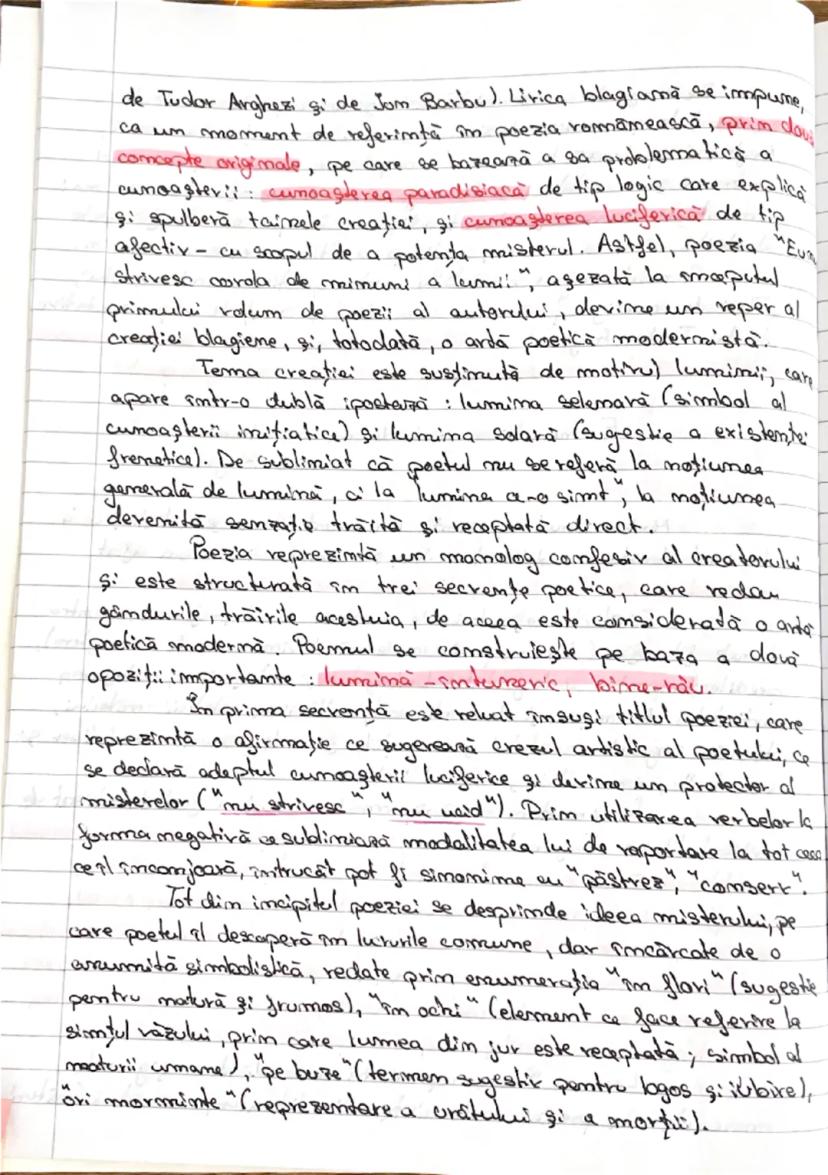 de Tudor Arghezi și de Ion Barbu). Lirica blagiană se impune,
ca un moment de referință în poezia românească, prin două
concepte originale, pe care se bazează a sa problematică a
cunoașterii: cunoașterea paradisiacă de tip logic care explică
și spulberă tainele creației, și cunoașterea luciferică de tip
afectiv - cu scopul de a potența misterul. Astfel, poezia "Eu nu
strivesc corola de minuni a lumii", așezată la începutul
primului volum de poezii al autorului, devine un reper al
creației blagiene, și, totodată, o artă poetică modernistă.
Tema creației este susținută de motivul luminii, care
apare într-o dublă ipostază: lumina selenară (simbol al
cunoașterii inițiatice) și lumina solară (sugestie a existenței
frenetice). De subliniat că poetul nu se referă la noțiunea
generală de lumină, ci la "lumina a-o simt", la noțiunea
devenită senzație trăită și receptată direct.
Poezia reprezintă un monolog confesiv al creatorului
și este structurată în trei secvențe poetice, care redau
gândurile, trăirile acestuia, de aceea este considerată o artă
poetică modernă. Poemul se construiește pe baza a două
opoziții importante: lumină - întuneric, bine-rău.
În prima secvență este reluat însuși titlul poeziei, care
reprezintă o afirmație ce sugerează crezul artistic al poetului, ce
se declară adeptul cunoașterii luciferice și devine un protector al
misterelor ("nu strivesc", "nu ucid"). Prin utilizarea verbelor la
forma negativă se subliniază modalitatea lui de raportare la tot ceea
ce îl înconjoară, întrucât pot fi sinonime cu "păstrez", "conserv".
Tot din incipitul poeziei se desprinde ideea misterului, pe
care poetul îl descoperă în lucrurile comune, dar încărcate de o
anumită simbolistică, redate prin enumerația "în flori" (sugestie
pentru natură și frumos), "în ochi" (element ce face referire la
simțul văzului, prin care lumea din jur este receptată; simbol al
naturii umane), "pe buze" (termen sugestiv pentru logos și iubire),
"ori morminte" (reprezentare a urâtului și a morții).